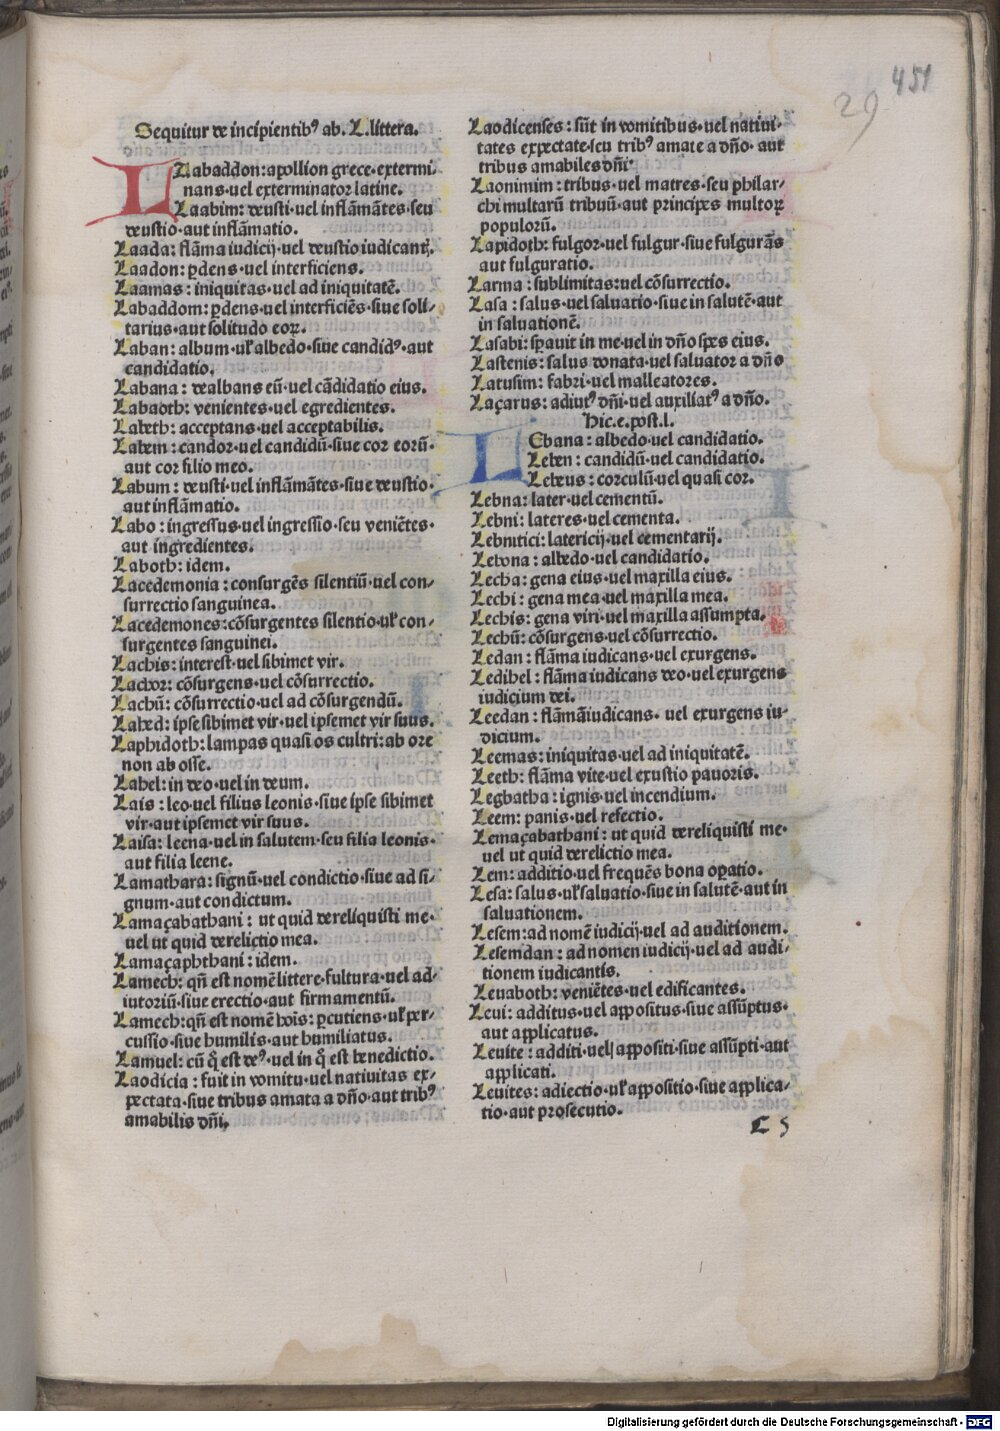 451
29
Sequitur de incipientibꝰ ab. L. littera.
LAabaddon: apollion grece·extermi
nans·uel exterminator latine.
Laabim: deusti·uel inflāmātes·seu
deustio·aut inflāmatio.
Laada: flāma iudicij·uel deustio iudicantis.
Laadon: ꝑdens·uel interficiens.
Laamas: iniquitas·uel ad iniquitatē.
Labaddom: ꝑdens·uel interficiēs·siue soli/
tarius·aut solitudo eoꝝ.
Laban: album·uł albedo·siue candidꝰ·aut
candidatio.
Labana: dealbans eū·uel cādidatio eius.
Labaoth: venientes·uel egredientes.
Labeth: acceptans·uel acceptabilis.
Labem: candor·uel candidū·siue cor eorū·
aut cor filio meo.
Labum: deusti·uel inflāmātes·siue deustio·
aut inflāmatio.
Labo: ingressus·uel ingressio·seu veniētes·
aut ingredientes.
Laboth: idem.
Lacedemonia: consurgēs silentiū·uel con/
surrectio sanguinea.
Lacedemones: cōsurgentes silentio·uł con/
surgentes sanguinei.
Lachis: interest·uel sibimet vir.
Lachor: cōsurgens·uel cōsurrectio.
Lachū: cōsurrectio·uel ad cōsurgendū.
Lahed: ipse sibimet vir·uel ipsemet vir suus.
Laphidoth: lampas quasi os cultri: ab ore
non ab osse.
Lahel: in deo·uel in deum.
Lais: leo·uel filius leonis·siue ipse sibimet
vir·aut ipsemet vir suus.
Laisa: leena·uel in salutem·seu filia leonis·
aut filia leene.
Lamathara: signū·uel condictio·siue ad si/
gnum·aut condictum.
Lamaçabathani: ut quid dereliquisti me·
uel ut quid derelictio mea.
Lamaçaphthani: idem.
Lamech: qñ est nomē littere·fultura·uel ad/
iutoriū·siue erectio·aut firmamentū.
Lamech: qñ est nomē hoīs: ꝑcutiens·uł per/
cussio·siue humilis·aut humiliatus.
Lamuel: cū q̄ est deꝰ·uel in q̄ est benedictio.
Laodicia: fuit in vomitu·uel natiuitas ex/
pectata·siue tribus amata a dño·aut tribꝰ
amabilis dñi.
Laodicenses: sūt in vomitibus·uel natiui·
tates expectate·seu tribꝰ amate a dño·aut
tribus amabiles dñi·
Laonimim: tribus·uel matres·seu philar/
chi multarū tribuū·aut principes multoꝝ
populorū.
Lapidoth: fulgor·uel fulgur·siue fulgurās
aut fulguratio.
Larma: sublimitas·uel cōsurrectio.
Lasa: salus·uel saluatio·siue in salutē·aut
in saluationē.
Lasabi: sꝑauit in me·uel in dño spes eius.
Lastenis: salus donata·uel saluator a dño
Latusim: fabri·uel malleatores.
Laçarus: adiutꝰ dñi·uel auxiliatꝰ a dño.
Hic.e.post.l.
LEbana: albedo·uel candidatio.
Leben: candidū·uel candidatio.
Lebeus: corculū·uel quasi cor.
Lebna: later·uel cementū.
Lebni: lateres·uel cementa.
Lebnitici: latericij·uel cementarij.
Lebona: albedo·uel candidatio.
Lecha: gena eius·uel maxilla eius.
Lechi: gena mea·uel maxilla mea.
Lechis: gena viri·uel maxilla assumpta.
Lechū: cōsurgens·uel cōsurrectio.
Ledan: flāma iudicans·uel exurgens.
Ledibel: flāma iudicans deo·uel exurgens
iudicium dei.
Leedan: flāmā iudicans· uel exurgens iu·
dicium.
Leemas: iniquitas·uel ad iniquitatē.
Leeth: flāma vite·uel exustio pauoris.
Legbatha: ignis·uel incendium.
Leem: panis·uel refectio.
Lemaçabathani: ut quid dereliquisti me·
uel ut quid derelictio mea.
Lem: additio·uel frequēs bona oꝑatio.
Lesa: salus·uł saluatio·siue in salutē·aut in
saluationem.
Lesem: ad nomē iudicij·uel ad auditionem.
Lesemdan: ad nomen iudicij·uel ad audi/
tionem iudicantis.
Leuaboth: veniētes·uel edificantes.
Leui: additus·uel appositus·siue assūptus·
aut applicatus.
Leuite: additi·uel appositi·siue assūpti·aut
applicati.
Leuites: adiectio·uł appositio·siue applica/
tio·aut prosecutio.
C 5
Digitalisierung gefördert durch die Deutsche Forschungsgemeinschaft - DFG